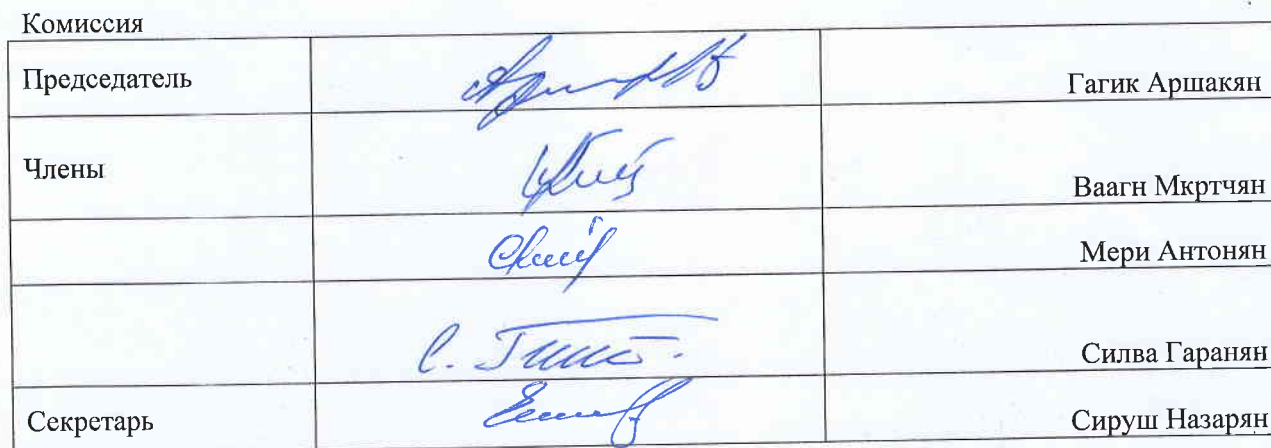 Комиссия
Председатель Гагик Аршакян
Члены Ваагн Мкртчян
Мери Антонян
Силва Гаранян
Секретарь Сируш Назарян